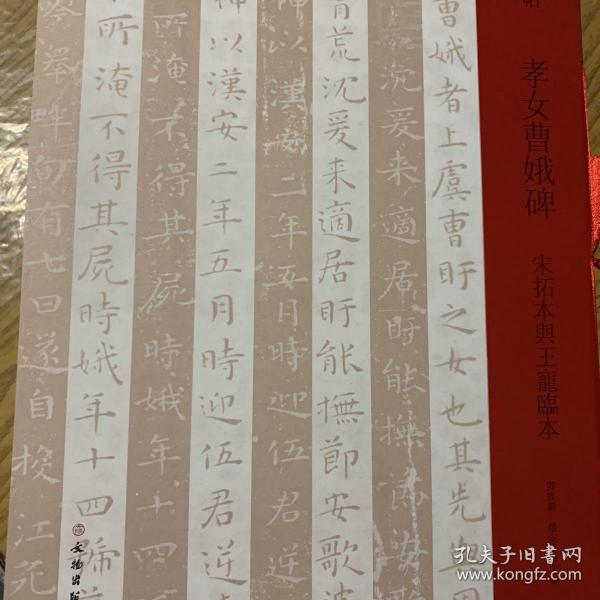 孝女曹娥碑
宋拓本與王寵臨本
曹娥者上虞曹盱之女也其先
沈爰来適居盱能撫節安
胄荒沈爰来適居盱能撫節安歌
神以漢安二年五月時迎伍君逆
神以漢安二年五月時迎伍君逆
所淹不得其屍時娥年十四
所淹不得其屍時娥年十四號
畔旬有七日遂自投江死
文物出版
孔夫子旧书网
www.kongfz.com